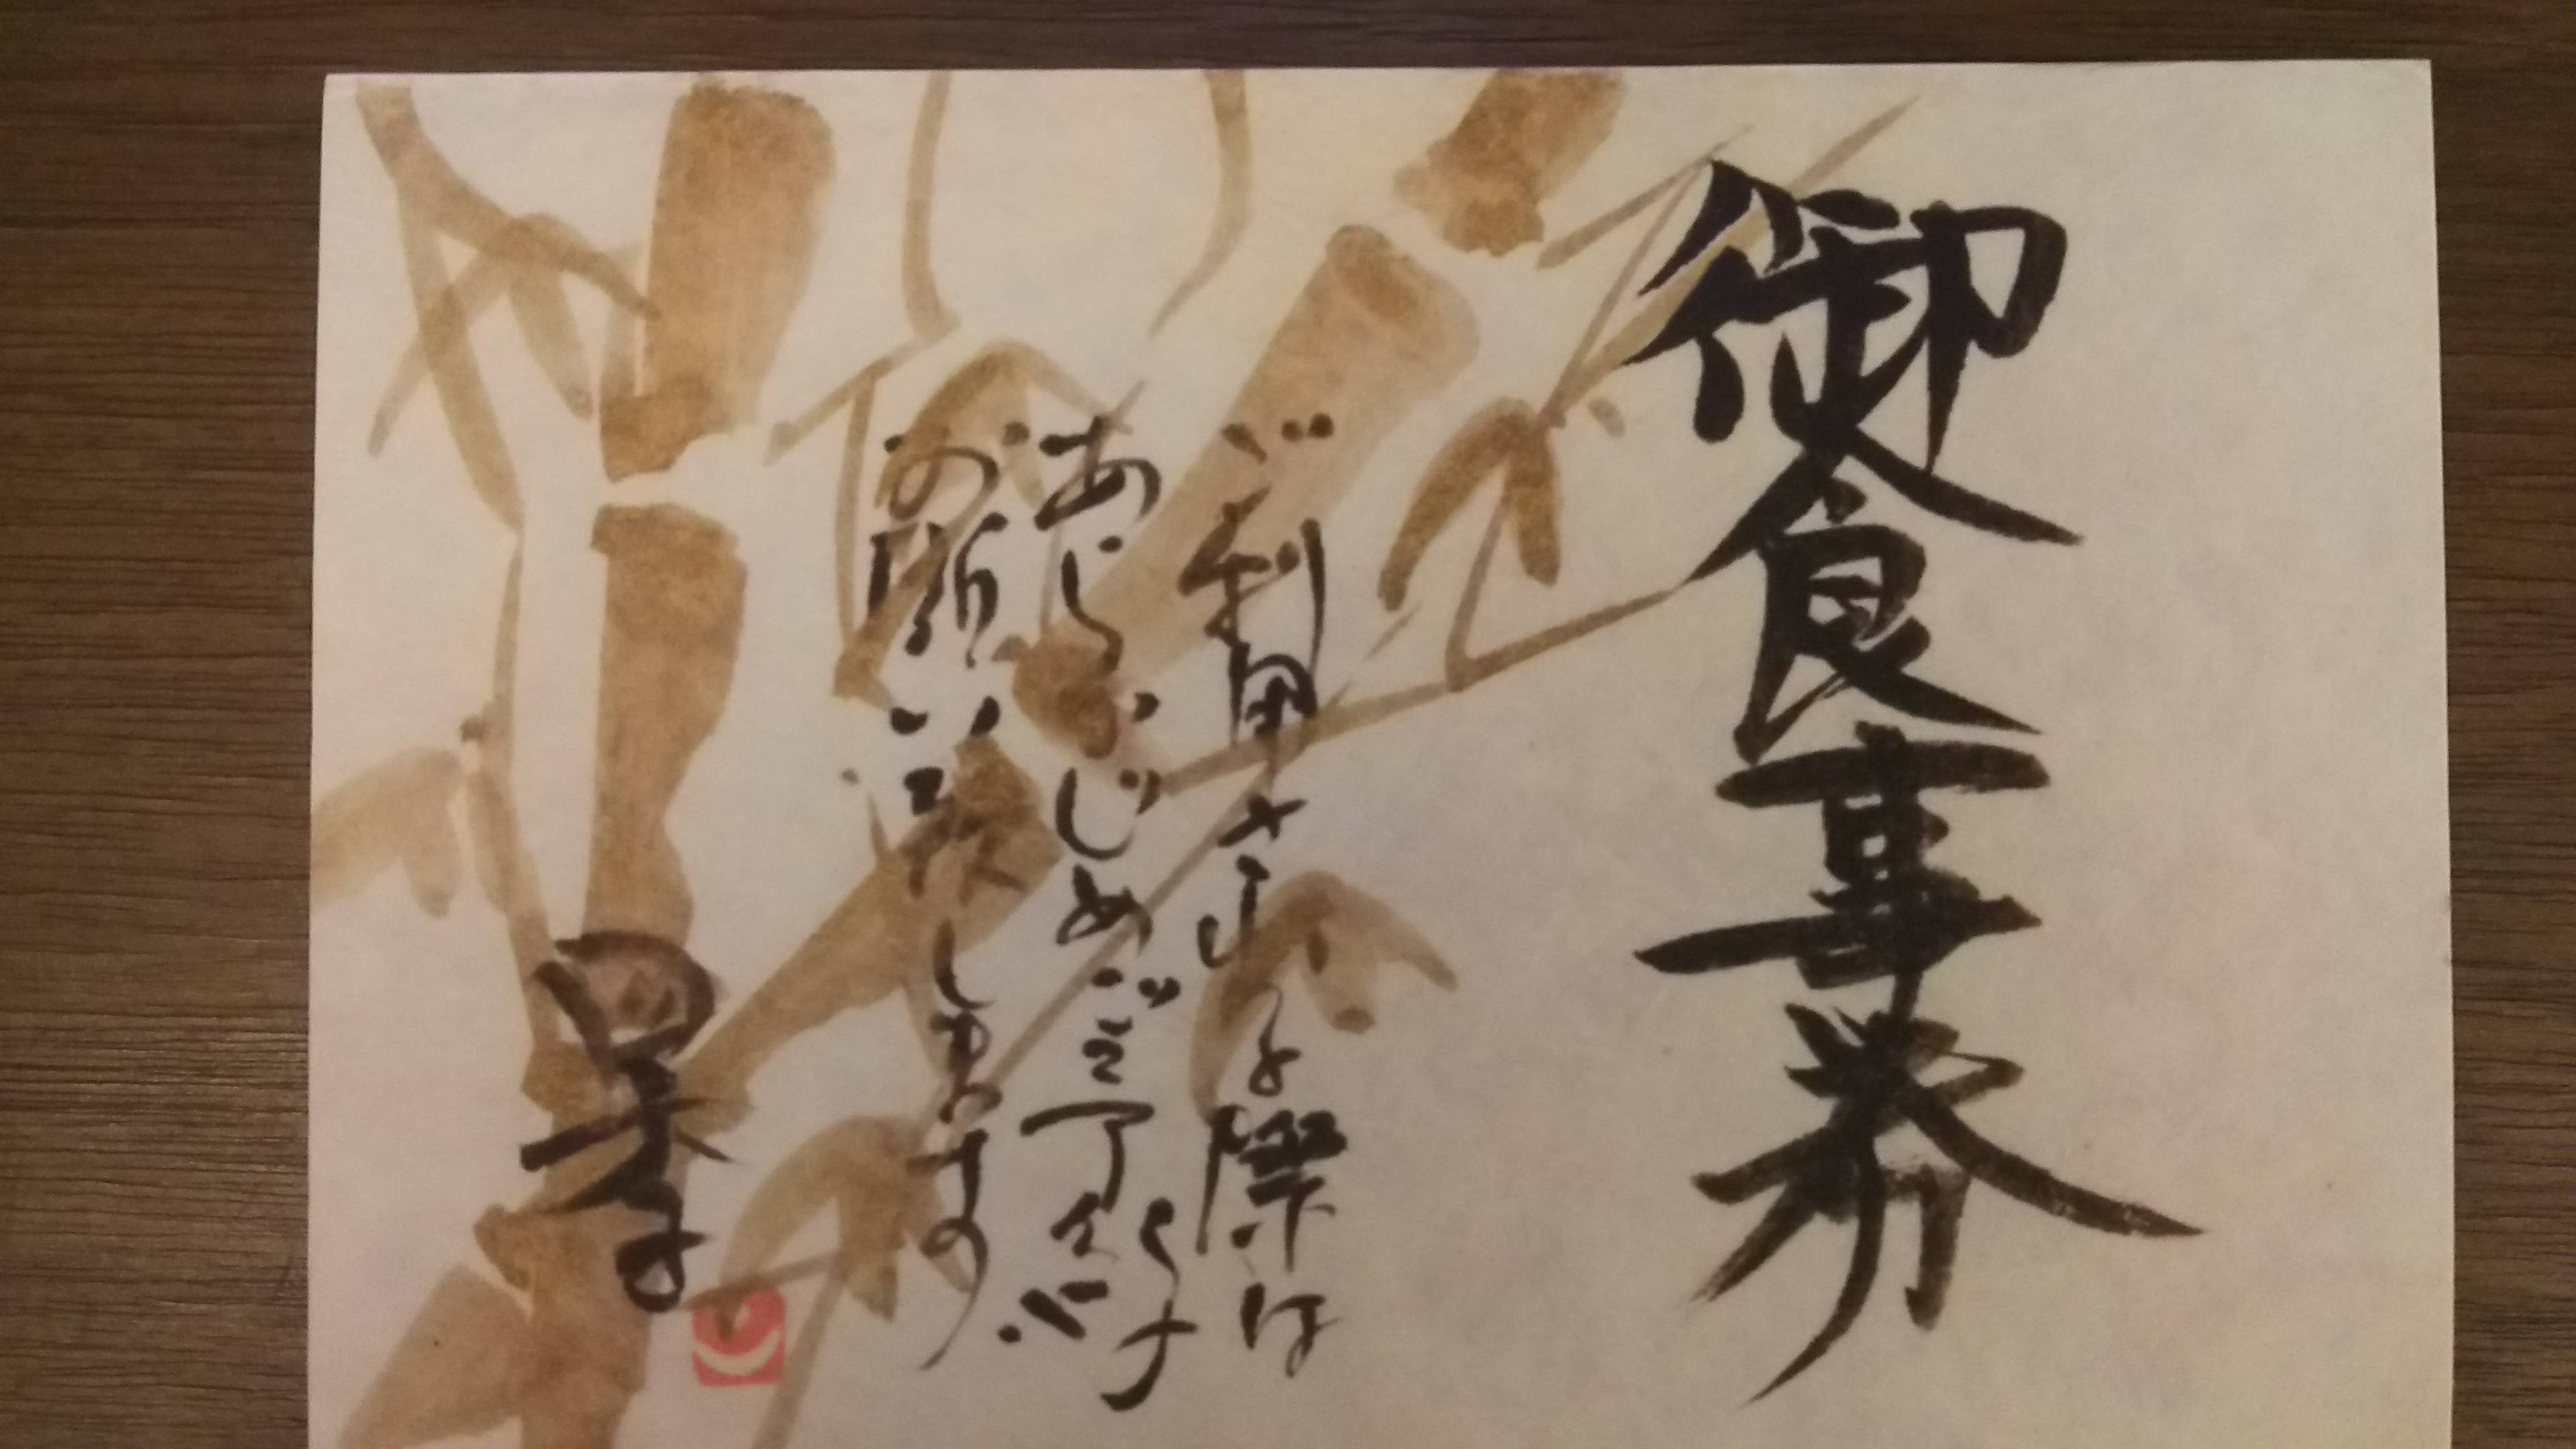 御食事券
ご利用される際は
あらかじめご予約
お願い致します